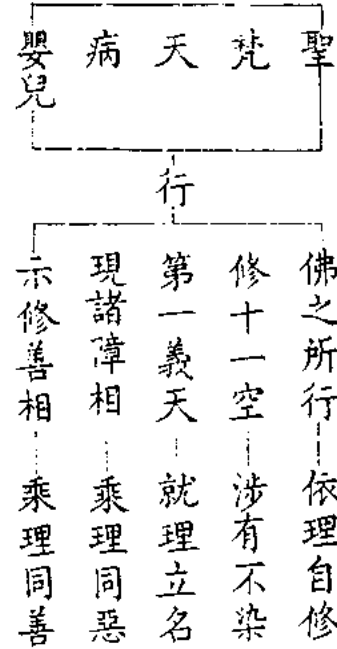 聖
梵
天
病
嬰兒
行
佛之所行 依理自修
修十一空 涉有不染
第一義天 就理立名
現諸障相 乘理同惡
示修善相 乘理同善